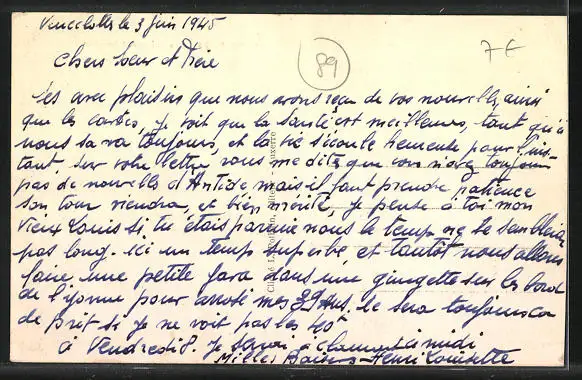 le 3 Juin 1945
7 €
Chers Soeur et Frère
89
avec plaisir que nous avons reçu de vos nouvelles, ainsi
que les cartes, je voit que la santé est meilleure, tant qu'à
nous sa va toujours, et la vie s'écoule pour l'ins-
tant, sur votre lettre vous me dite que vous n'avez toujours
pas de nouvelles d'Antide, mais il faut prendre patience
son tour viendra, et bien mérité, je pense à toi mon
vieux Louis si tu étais parmi nous le temps ne te semblerai
pas long. ici un temps superbe, et tantôt nous allons
faire une petite fara dans une ginguette sur les bord
de l'yonne pour arrosé mes 39 ans, se sera toujours ca
de prit si je ne voit pas les 40
à Vendredi 8. Je serai à clamart à midi
Milles Baisers Henri Louisette